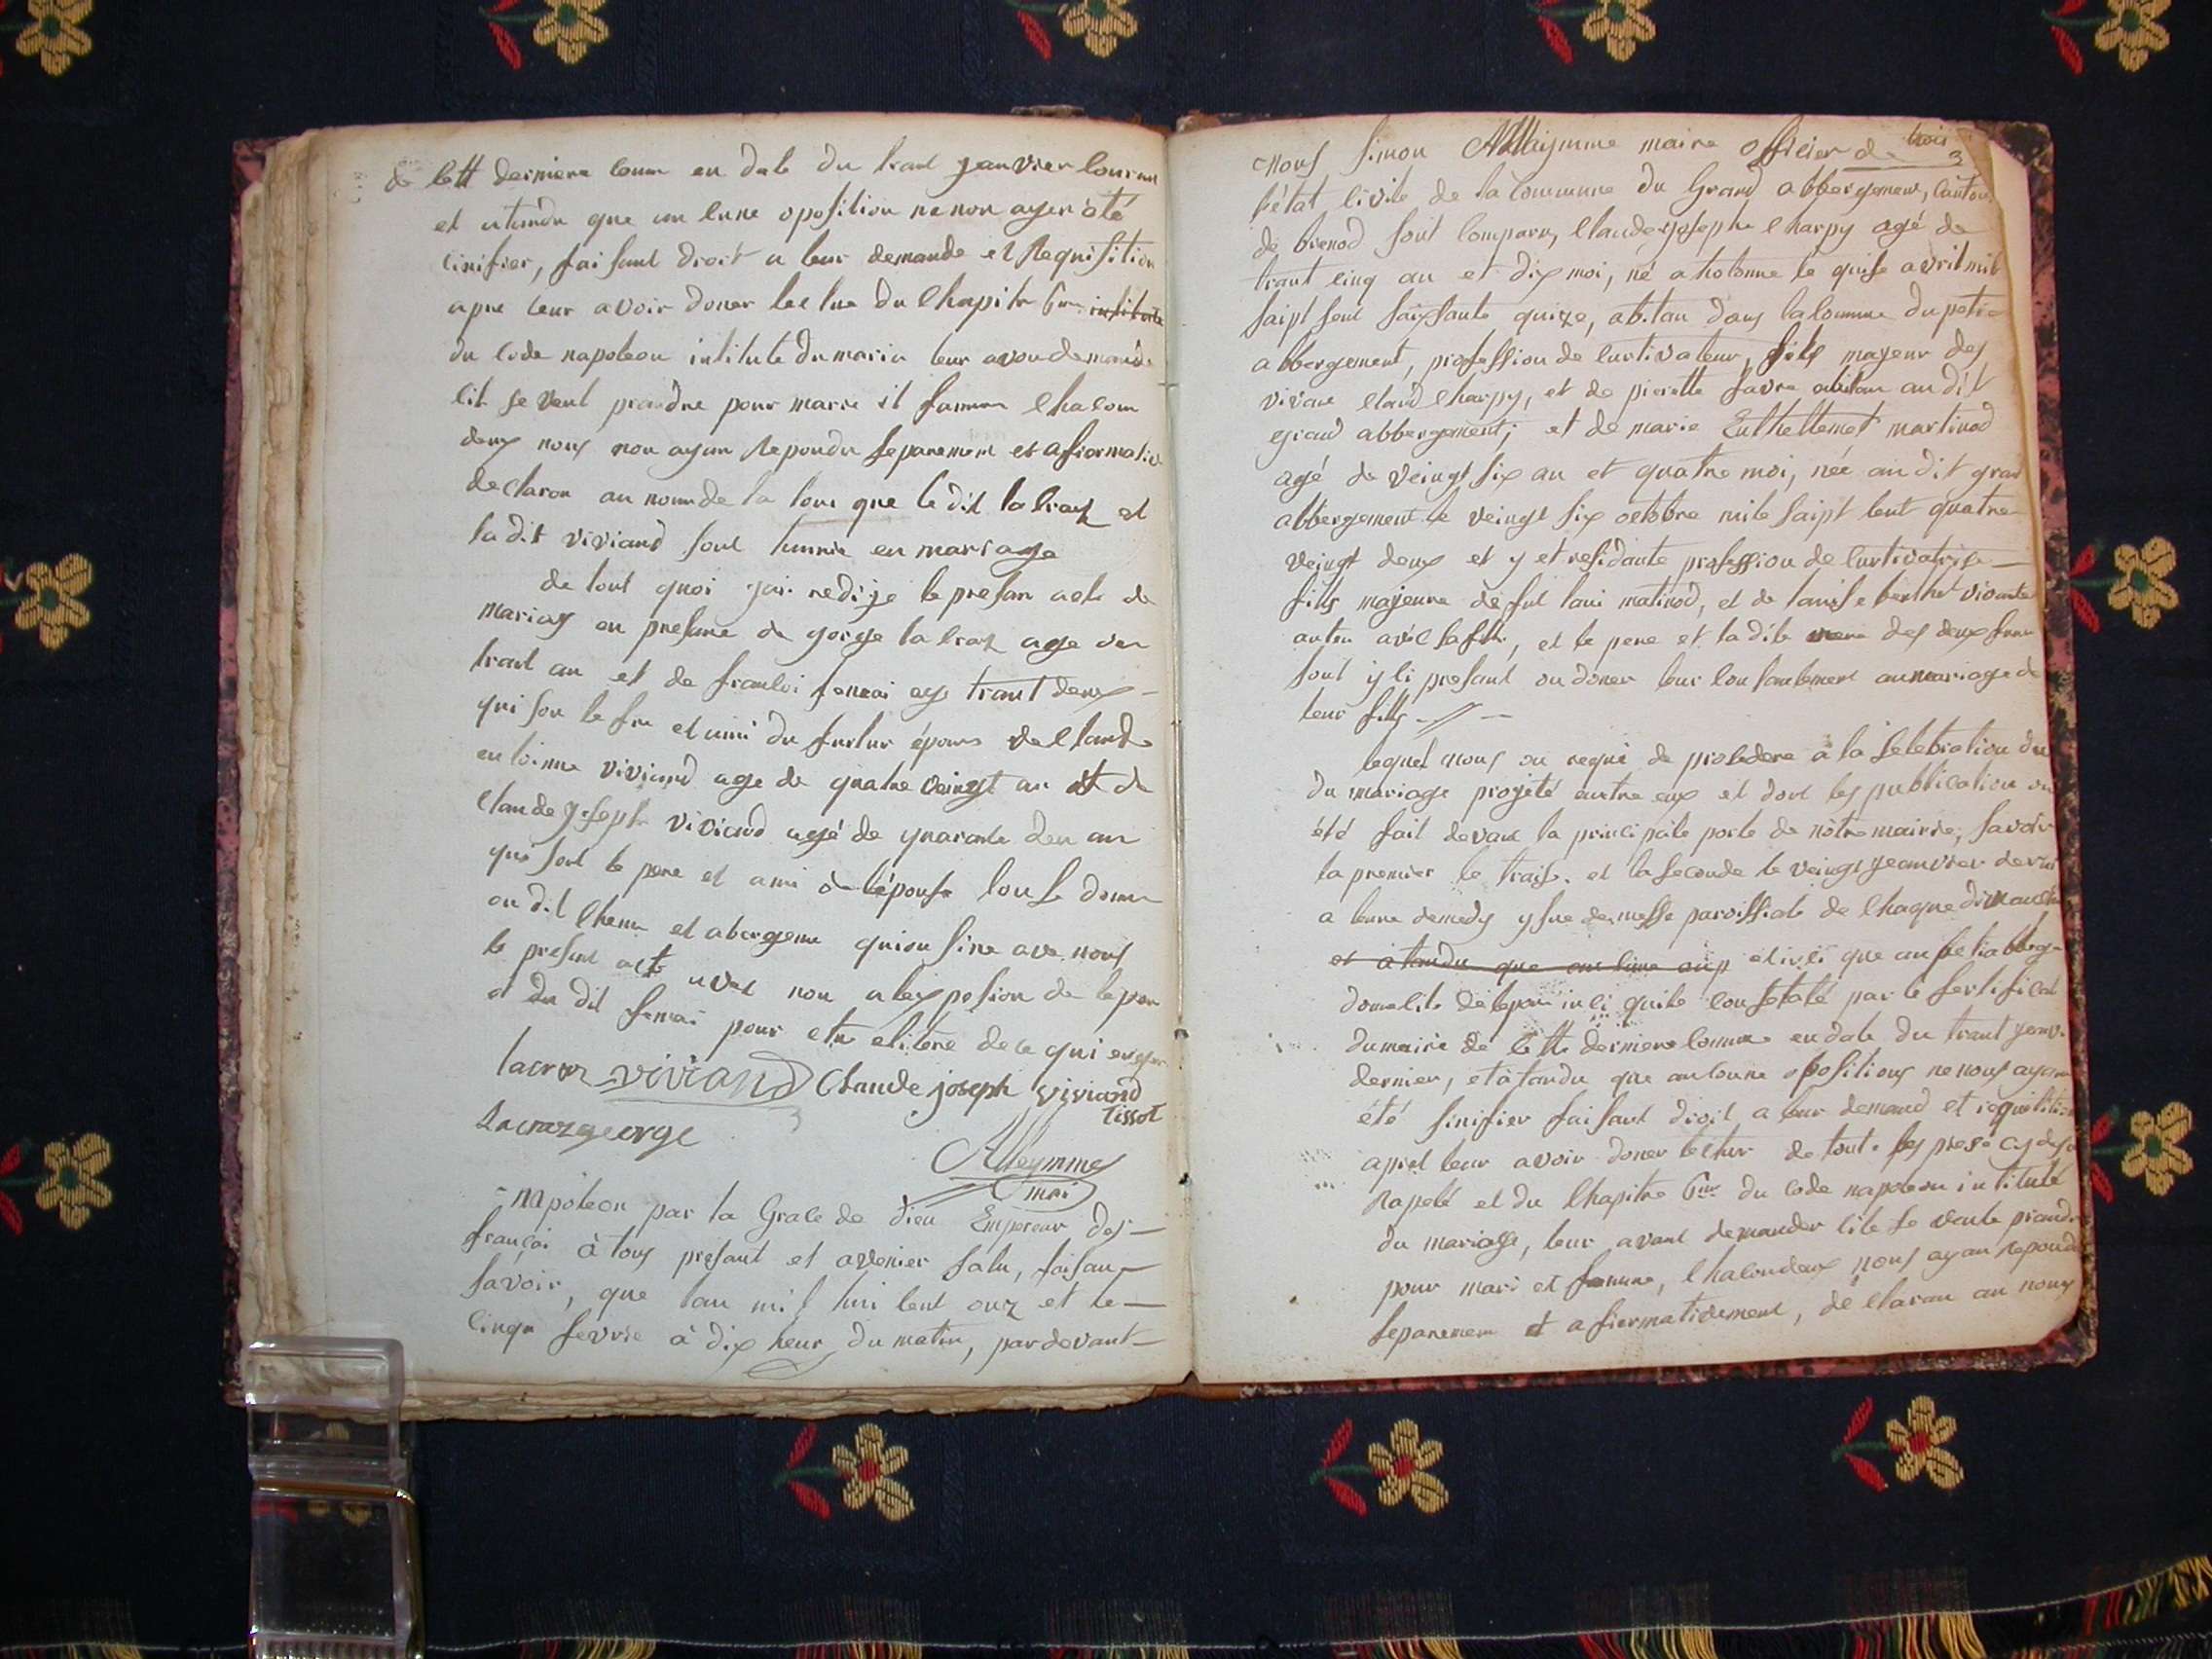 de cett derniere comm en date du trant jeanvier couran
et atandu que un cune oposition ne non ayer été
cinifier, faisant droit a leur demande et Requisition
apre leur avoir doner lectue du Chapitr 6me
du Code napoleon intitule du maria leur avon demandé
cil se veul prandre pour marie et famme Chacom
deux nous non ayan Repondu separemen et afirmative
declaron au nomm de la loui que le dit lacraz et
la dit viviand sont hunnie en mariage
de tout quoi jai redije le presan acte de
mariag en presance de gorge lacraz age den
trant an et de francoi age trant deux
qui son le fre et ami du futur épous de Claude
viviand age de quatre veingt an et de
Claude joseph viviand agé de quarante deu an
qui sont le pere et ami de lépouse
au dit et abergeme qui on sine ave nous
le presant acte avec non a lexpesion de lepou
et du dit pour etre de ce qui
lacroz viviand Claude joseph viviand
tissot
Lacrazgeorge
Alleymme
mai
napoleon par la Grace de dieu Empereur des
françai à tous presant et avenier salu, faisan
savoir, que lan mil hui cent onz et le
cinqe fevrie à dix heur du matin, pardevant
trois
3
nous simon Allleymme maire officier de
létat civile de la Commune du Grand abbergement, Canton
de brenod sont Comparu, Claude joseph Charpy agé de
trant cinq an et dix moi, né a hotonne le quise avril mil
saipt sent saissante quize, abitan dans la Commune du petit
abbergement, profession de Curtivateur, fils mayeur des
vivan Claud Charpy, et de pierette favre abitan au dit
grand abbergement; et de marie martinod
agé de veingt six an et quatre moi, née au dit gran
abbergement le veingt six octobre mile saipt cent quatre
veingt deux et y et residante profession de Curtivatrise
fills majeure de fut loui matinod, et de louise berthet vivante
avéc sa fill, et le pere et la dite mere des deux
sont y ci presant ou doner leur consantement au mariage de
leur fills
lequel nous ou requi de procedere à la selebration du
du mariage projeté entre eux et dont les publication on
été fait devant la principale porte de nôtre mairie; savoir
la premier le traise et la seconde le veingt jeanvier dernie
a leure demedy ysue de messe paroissiale de chaque dimanche
et atandu que que au petit abberge
domelile de lepou qui le constaté par le sertificat
du mairie de cette derniere Commune en date du trant jeanvi
dernier, et àtandu que aucune opositions ne nous ayan
été sinifier faisant droit a leur demand et requisition
apret leur avoir doner lectur de toute les piesé cydesu
Rapelé et du Chapitre 6me du Code napoleon intitulé
du mariage, leur avant demander cile se veule prandre
pour mari et famme, Chacundeux nous ayan Repondu
separemen et afiermativement, declaron au nom